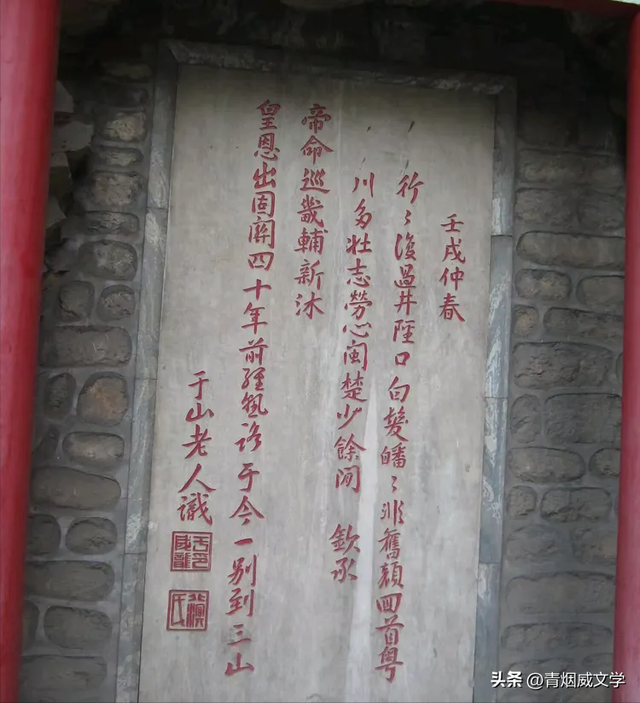 壬戌仲春
行〻復過井陘口白髮皤〻非舊顏回首粵
川多壯志勞心閩楚少餘閒 欽承
帝命巡畿輔新沐
皇恩出固關四十年前經熟路于今一別到三山
于山老人識
北溟氏
头条 @青烟威文学